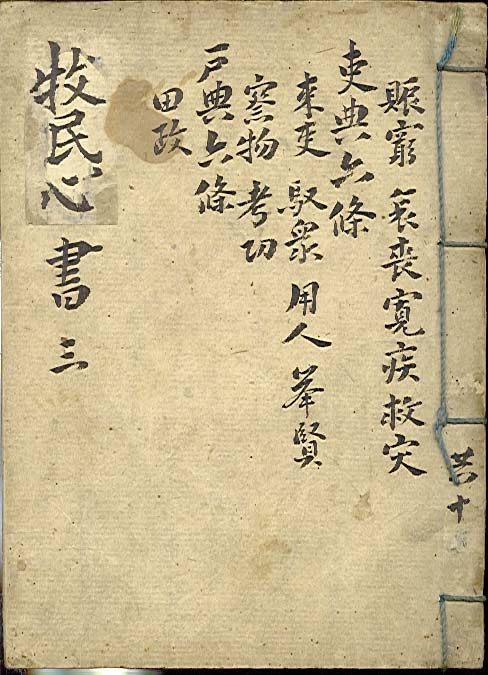 共十
賑窮 哀喪 寬疾 救灾
吏典六條
束吏 馭衆 用人 举賢
察物 考功
戶典六條
田政
牧民心書 三